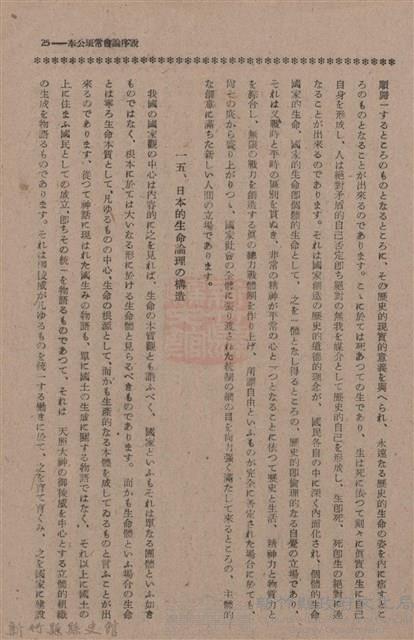 奉公班常會論序說—25
順歸一するところのものとなるところに、その歷史的現實的意義を與へられ、永遠なる歷史的生命の姿を內に宿すとこ
ろのものとなることが出來るのであります。こゝに於ては死あつての生であり、生は死に依つて刻々に眞實の生に自己
自身を形成し、人は絕對矛盾的自己否定卽ち絕對の無我を媒介として歷史的自己を形成し、生卽死、死卽生の絕對境と
なることが出來るのであります。それは國家創造の歷史的道德的理念が、國民各自の中に深く內面化され、個體的生命卽
國家的生命、國家的生命卽個體的生命として、之を一體となし得るところの、歷史的卽倫理的なる自覺の立場であり、
それは又戰時と平時の區別を貫ぬき、非常の精神が平常の心と一つとなることに依つて歷史と生活、精神力と物質力と
を綜合し、無限の戰力を創造する眞の總力戰體制を作り上げ、所謂自由といふものが完全に否定された場合に於ても、
尙その底から盛り上がりつゝ、國家社會の全體に張り渡された統制の網の目を內力强く滿たして來るところの、主體的
な創意に滿ちた新しい人間の立場であります。
一五、日本的生命論理の構造
我國の國家觀の中心は內容的に之を見れば、生命の本質觀とも謂ふべく、國家といふもそれは單なる團體といふ如き
ものではなく、根本に於ては大いなる形に於ける生命體と見らるべきものであります。而かも生命體といふ場合の生命
とは寧ろ生命本質として、凡ゆるものの中心、生命の根源として、而かも生產的なる本體を成してゐるものと言ふことが出
來るのであります、從つて神話に現はれた國生みの物語も、單に國土の生成に關する物語ではなく、それ以上に國土の
上に住まふ國民としての成立、卽ちその統一を物語るものであつて、それは 天照大神の御稜威を中心とする立體的組織
の生成を物語るものであります。それは御稜威が凡ゆるものを統一する働きに於て、之を育て育くみ、之を國家に建設
新竹縣縣史館